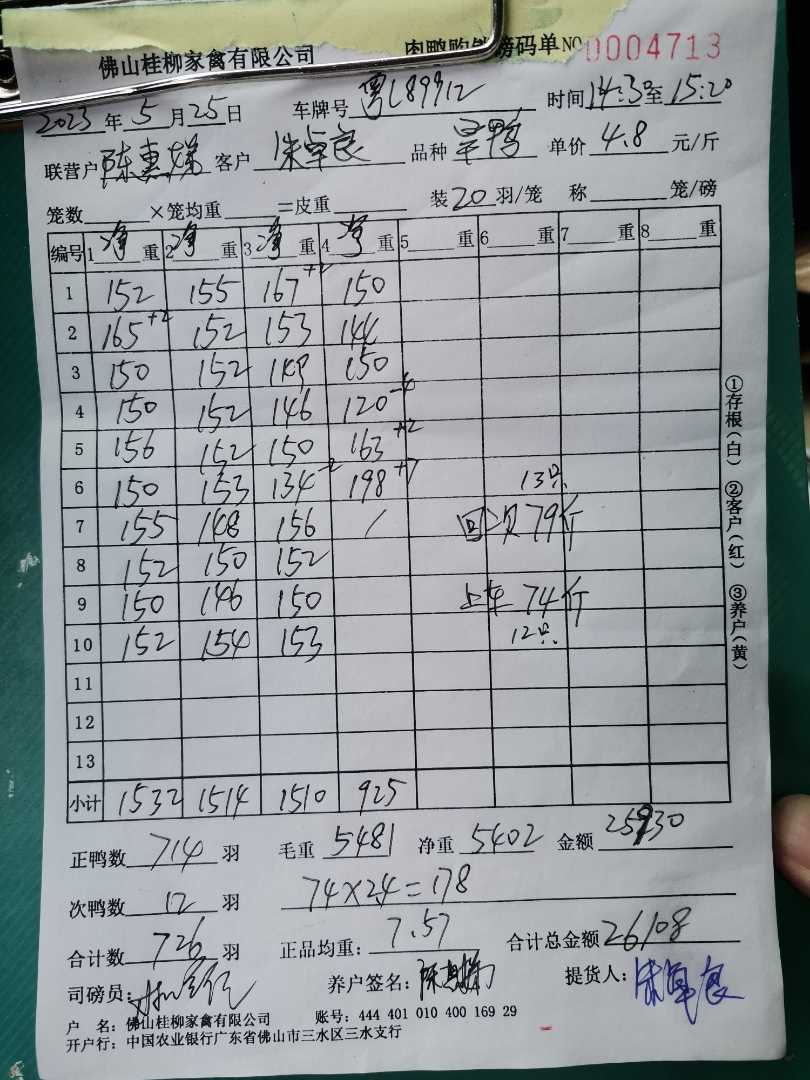 佛山桂柳家禽有限公司 肉鸭购销磅码单 NO 0004713
2023年5月25日 车牌号 粤L89912 时间 14:30至15:20
联营户 陈惠 客户 朱卓良 品种 单价 4.8 元/斤
笼数 ×笼均重 =皮重 装20羽/笼 称 笼/磅
编号 1净重 2净重 3净重 4净重 5 重 6 重 7 重 8 重
1 152 155 167+2 150
2 165 152 153 144
3 150 152 149 150
4 150 152 146 120
5 156 152 150 163+2
6 150 153 134-2 198+7 13只
7 155 148 156 / 回次79斤
8 152 150 152
9 150 146 150 上车74斤
10 152 154 153 12只
11
12
13
小计 1532 1514 1510 925
正鸭数 714 羽 毛重 5481 净重 5402 金额 25930
次鸭数 12 羽 74×2.4=178
合计数 726 羽 正品均重: 7.57 合计总金额 26108
司磅员: 养户签名: 陈惠 提货人: 朱卓良
户 名: 佛山桂柳家禽有限公司 账号: 444 401 010 400 169 29
开户行: 中国农业银行广东省佛山市三水区三水支行
①存根(白) ②客户(红) ③养户(黄)